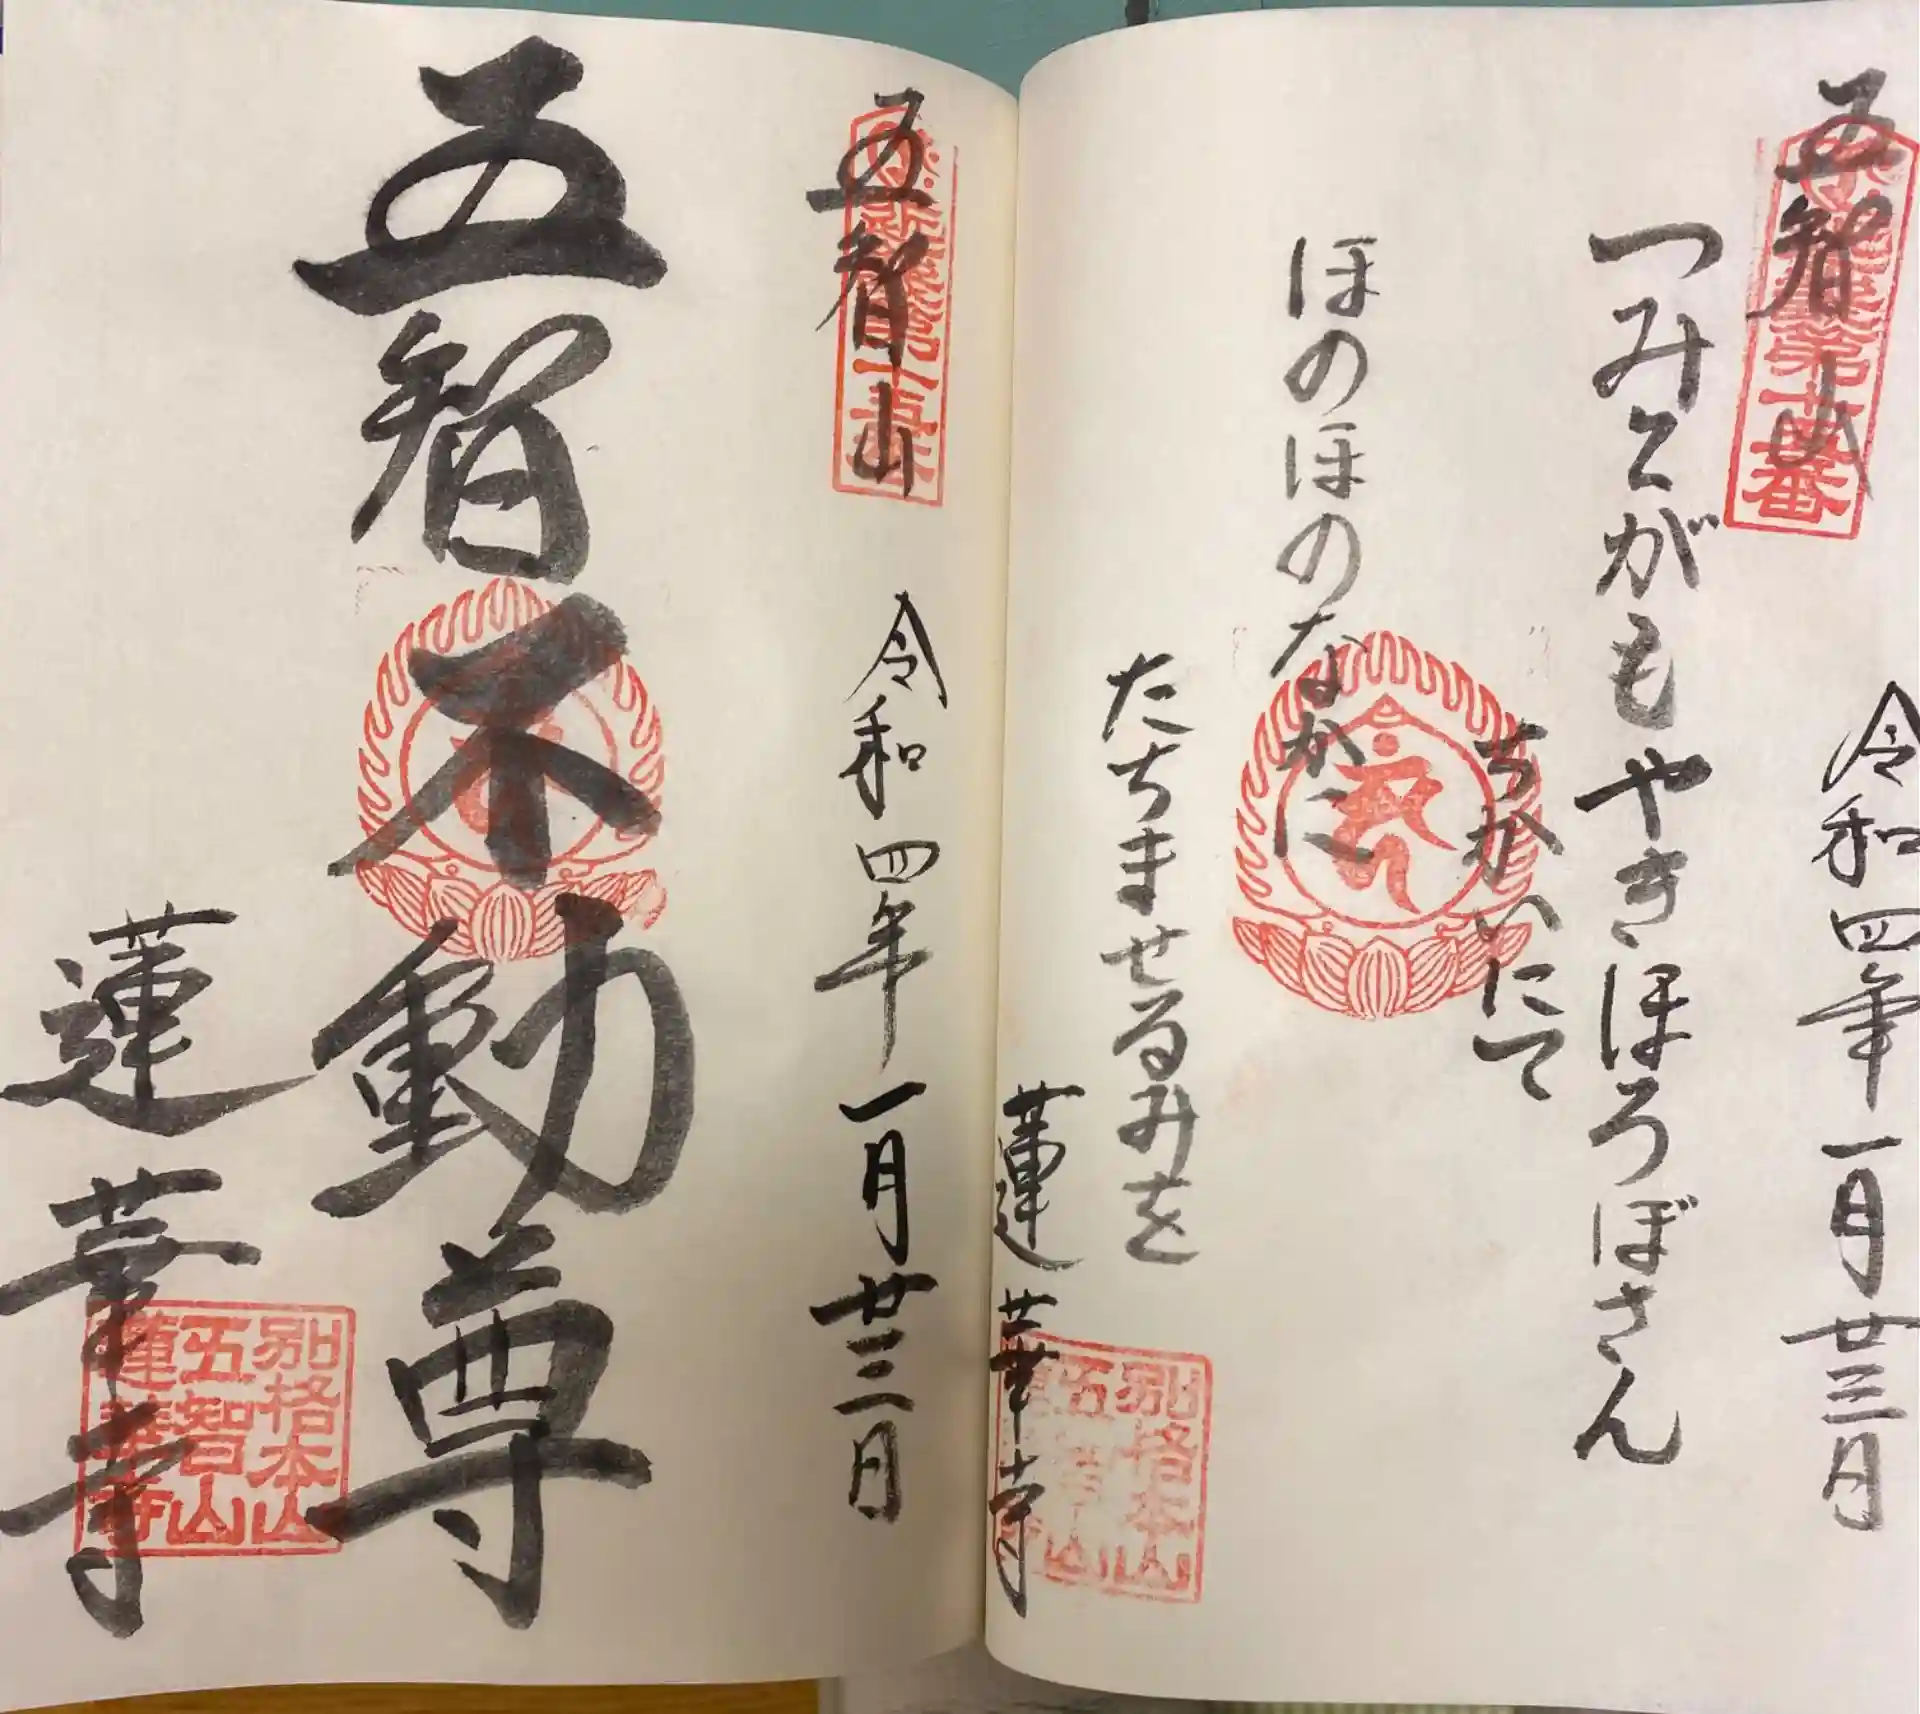 五智山
令和四年一月廿三日
つみとがもやきほろぼさん
ちかいにて
ほのほのなかに
たちませるみを
蓮華寺
別格本山
五智山
蓮華寺
五智山
令和四年一月廿三日
五智不動尊
蓮華寺
別格本山
五智山
蓮華寺